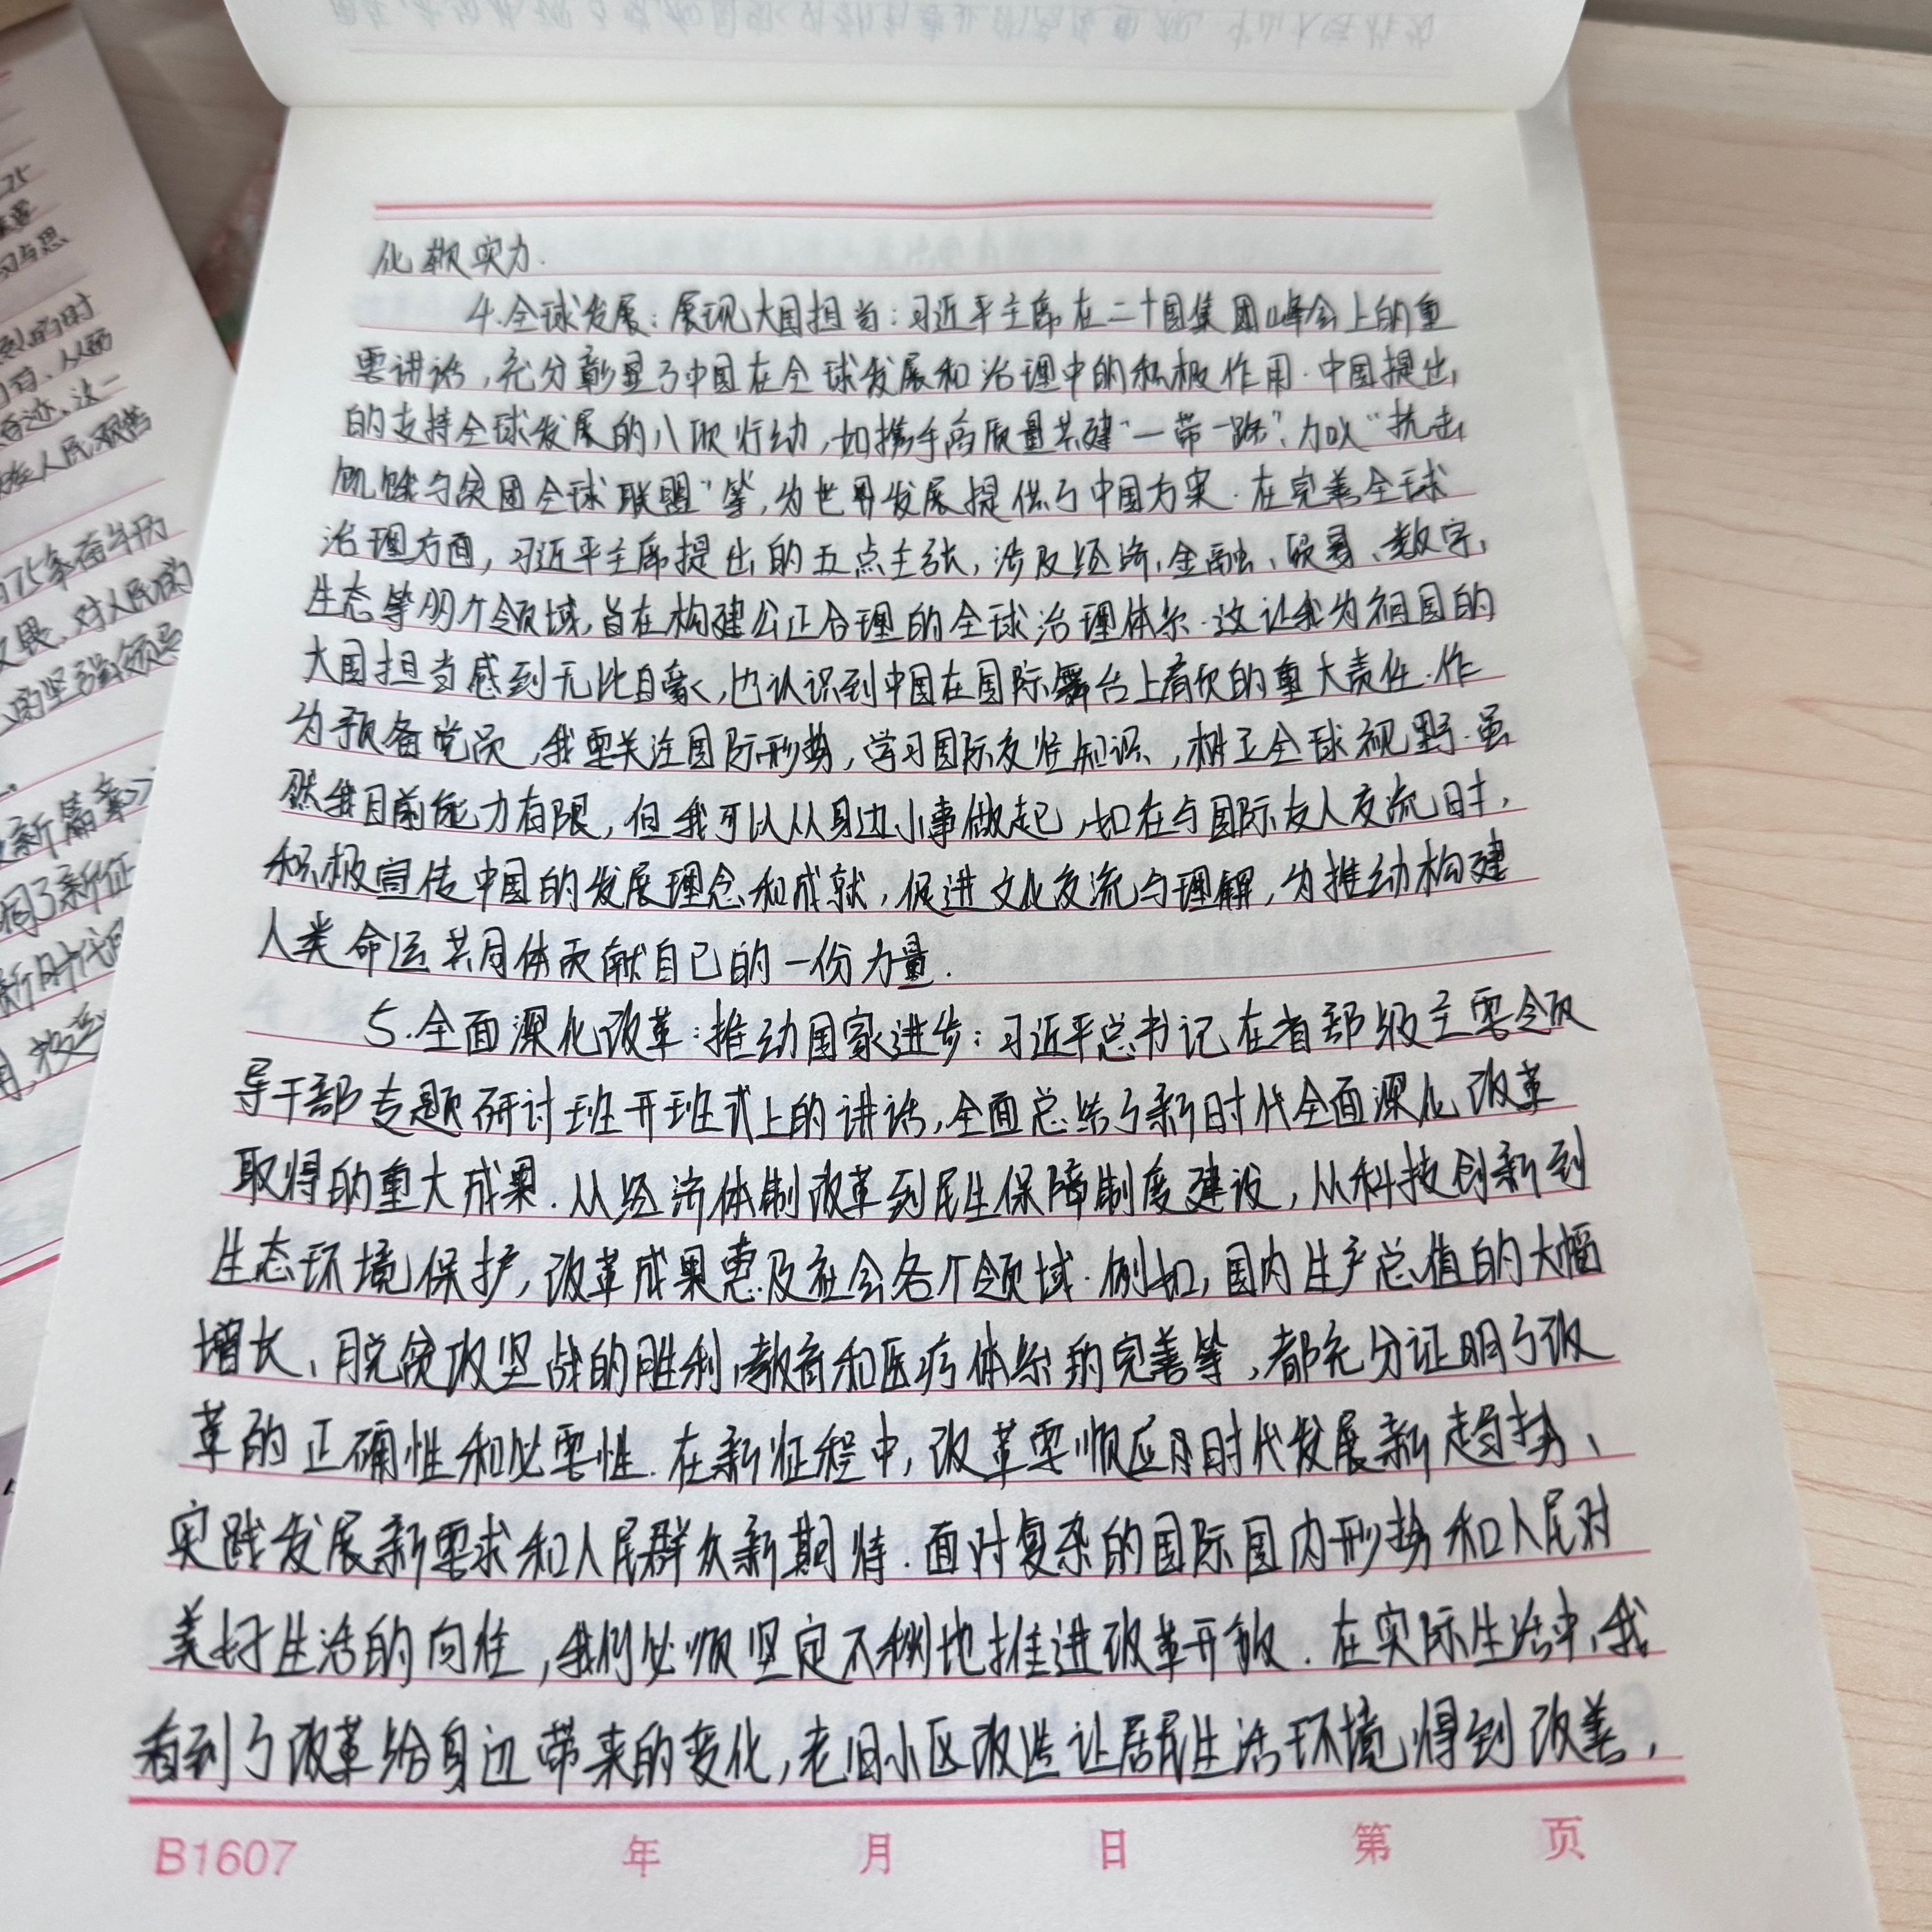 化软实力.
4.全球发展:展现大国担当:习近平主席在二十国集团峰会上的重
要讲话,充分彰显了中国在全球发展和治理中的积极作用.中国提出
的支持全球发展的八项行动,如携手高质量共建“一带一路”、加以“抗击
饥饿与贫困全球联盟”等,为世界发展提供了中国方案.在完善全球
治理方面,习近平主席提出的五点主张,涉及经济、金融、贸易、数字、
生态等多个领域,旨在构建公正合理的全球治理体系.这让我为祖国的
大国担当感到无比自豪,也认识到中国在国际舞台上肩负的重大责任.作
为预备党员,我要关注国际形势,学习国际交往知识,树立全球视野.虽
然我目前能力有限,但我可以从身边小事做起,如在与国际友人交流时,
积极宣传中国的发展理念和成就,促进文化交流与理解,为推动构建
人类命运共同体贡献自己的一份力量.
5.全面深化改革:推动国家进步:习近平总书记在省部级主要领
导干部专题研讨班开班式上的讲话,全面总结了新时代全面深化改革
取得的重大成果.从经济体制改革到民生保障制度建设,从科技创新到
生态环境保护,改革成果惠及社会各个领域.例如,国内生产总值的大幅
增长、脱贫攻坚战的胜利、教育和医疗体系的完善等,都充分证明了改
革的正确性和必要性.在新征程中,改革要顺应时代发展新趋势、
实践发展新要求和人民群众新期待.面对复杂的国际国内形势和人民对
美好生活的向往,我们必须坚定不移地推进改革开放.在实际生活中,我
看到了改革给身边带来的变化,老旧小区改造让居民生活环境得到改善,
B1607 年 月 日 第 页